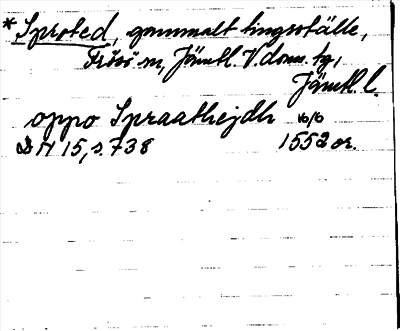 * Sproted, gammalt tingsställe,
Frösö sn, Jämtl. V. doms. tg,
Jämtl. l.
oppo Spraathejdh 16/6
DN 15, s. 738 1552 or.